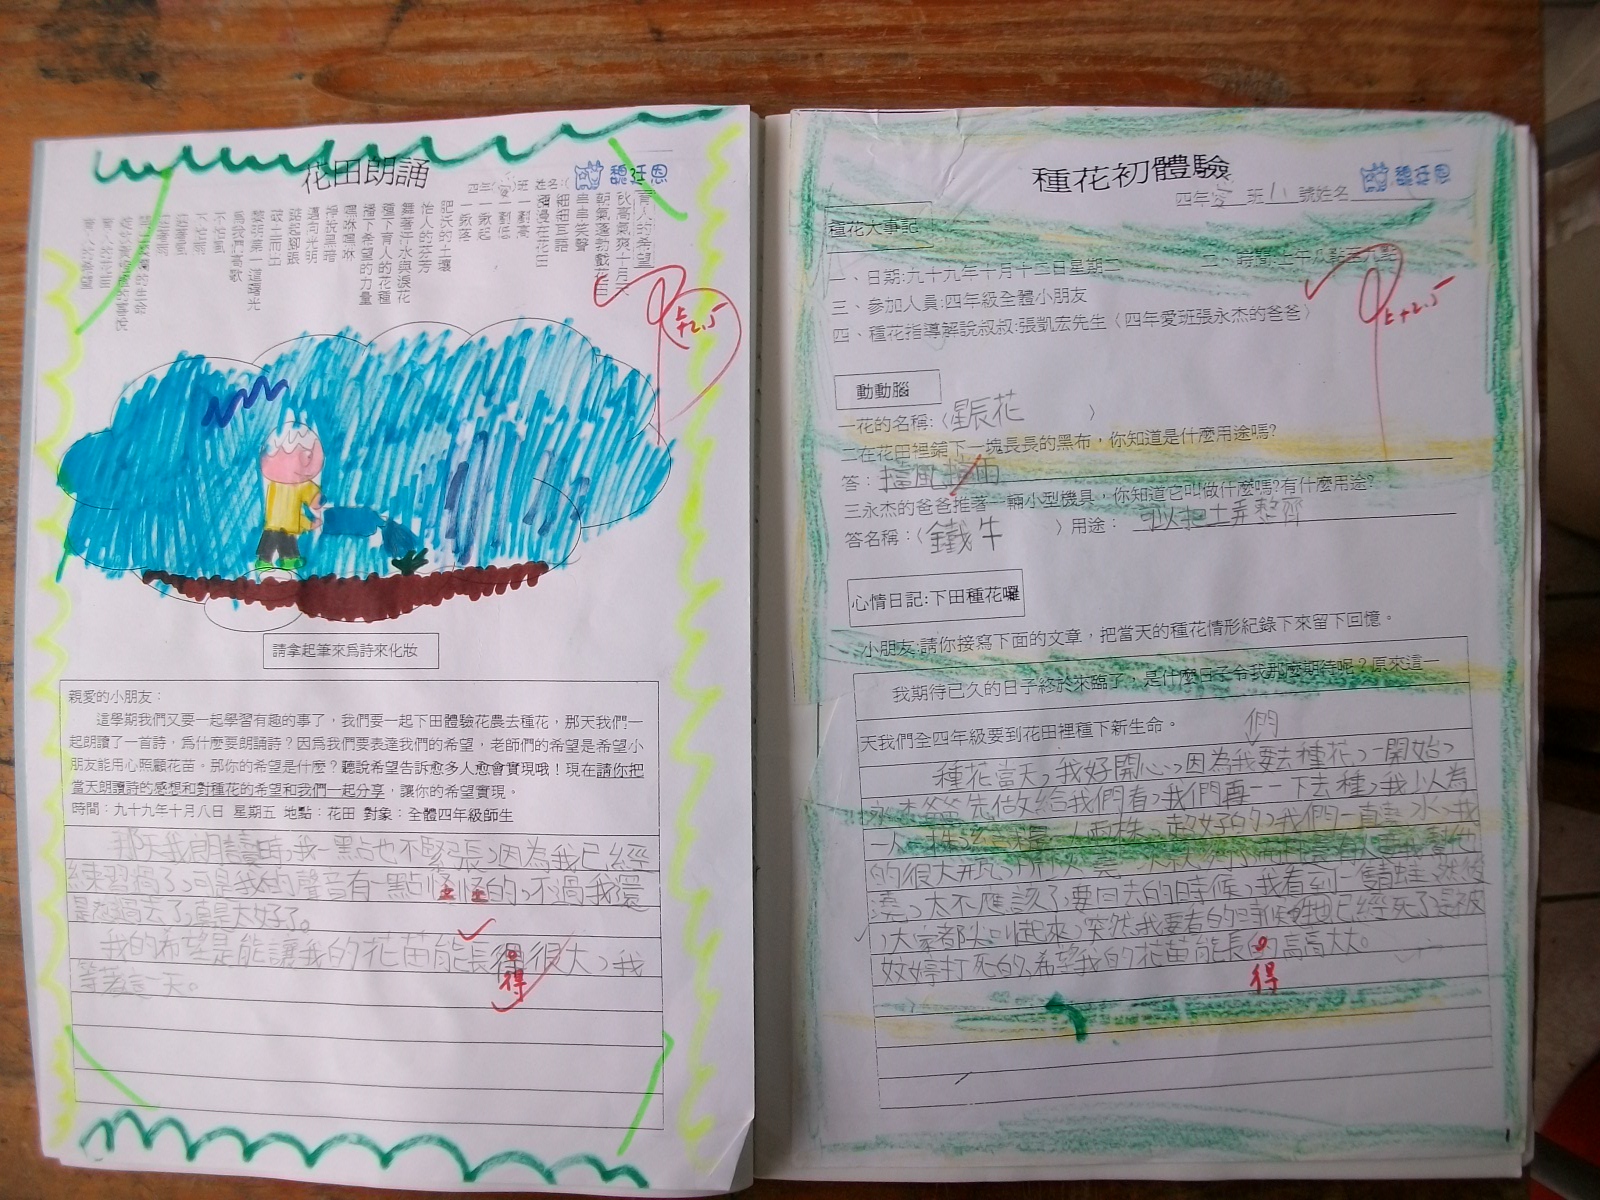 花田朗誦
四年(愛)班 姓名:(
魏廷恩
育人的希望
秋高氣爽十月天
朝氣蓬勃戲花田
串串笑聲
細細耳語
瀰漫在花田
一劃高
一劃低
一鍬起
一鍬落
肥沃的土壤
怡人的芬芳
舞著汗水與淚花
種下育人的花種
播下希望的力量
嘿咻嘿咻
掙脫黑暗
邁向光明
踮起腳跟
破土而出
黎明第一道曙光
為我們高歌
不怕風
不怕雨
上+2.5
請拿起筆來為詩來化妝
親愛的小朋友:
這學期我們又要一起學習有趣的事了,我們要一起下田體驗花農去種花,那天我們一
起朗讀了一首詩,為什麼要朗誦詩?因為我們要表達我們的希望,老師們的希望是希望小
朋友能用心照顧花苗。那你的希望是什麼?聽說希望告訴愈多人愈會實現哦!現在請你把
當天朗讀詩的感想和對種花的希望和我們一起分享,讓你的希望實現。
時間:九十九年十月八日 星期五 地點:花田 對象:全體四年級師生
那天我朗讀時,我一點也不緊張,因為我已經
練習過了,可是我的聲音有一點怪怪的,不過我還
是念過去了,真是太好了。
我的希望是能讓我的花苗能長得很大,我
得
等著這一天。
種花初體驗
四年 愛 班 11 號姓名
魏廷恩
種花大事記
一、日期:九十九年十月十二日星期二 二、時間:上午八點至九點
三、參加人員:四年級全體小朋友
四、種花指導解說叔叔:張凱宏先生〈四年愛班張永杰的爸爸〉
上+2.5
動動腦
一花的名稱:〈星辰花 〉
二在花田裡鋪下一塊長長的黑布,你知道是什麼用途嗎?
答:擋風擋雨
三永杰的爸爸推著一輛小型機具,你知道它叫做什麼嗎?有什麼用途?
答名稱:〈鐵牛 〉用途: 可以把土弄整齊
心情日記:下田種花囉
小朋友:請你接寫下面的文章,把當天的種花情形紀錄下來留下回憶。
我期待已久的日子終於來臨了,是什麼日子令我那麼期待呢?原來這一
天我們全四年級要到花田裡種下新生命。
們
種花當天,我好開心,因為我要去種花,一開始,
永杰爸爸先做給我們看,我們再一一下去種,我以為
一人一株,結果一人兩株,超好的,我們一直熱水,我
的很大瓶
澆,太不應該了,要回去的時候,我看到一隻青蛙,然後
,大家都尖叫起來,突然我要看的時候牠已經死了,是被
妏婷打死的,希望我的花苗能長的高高大大。
得